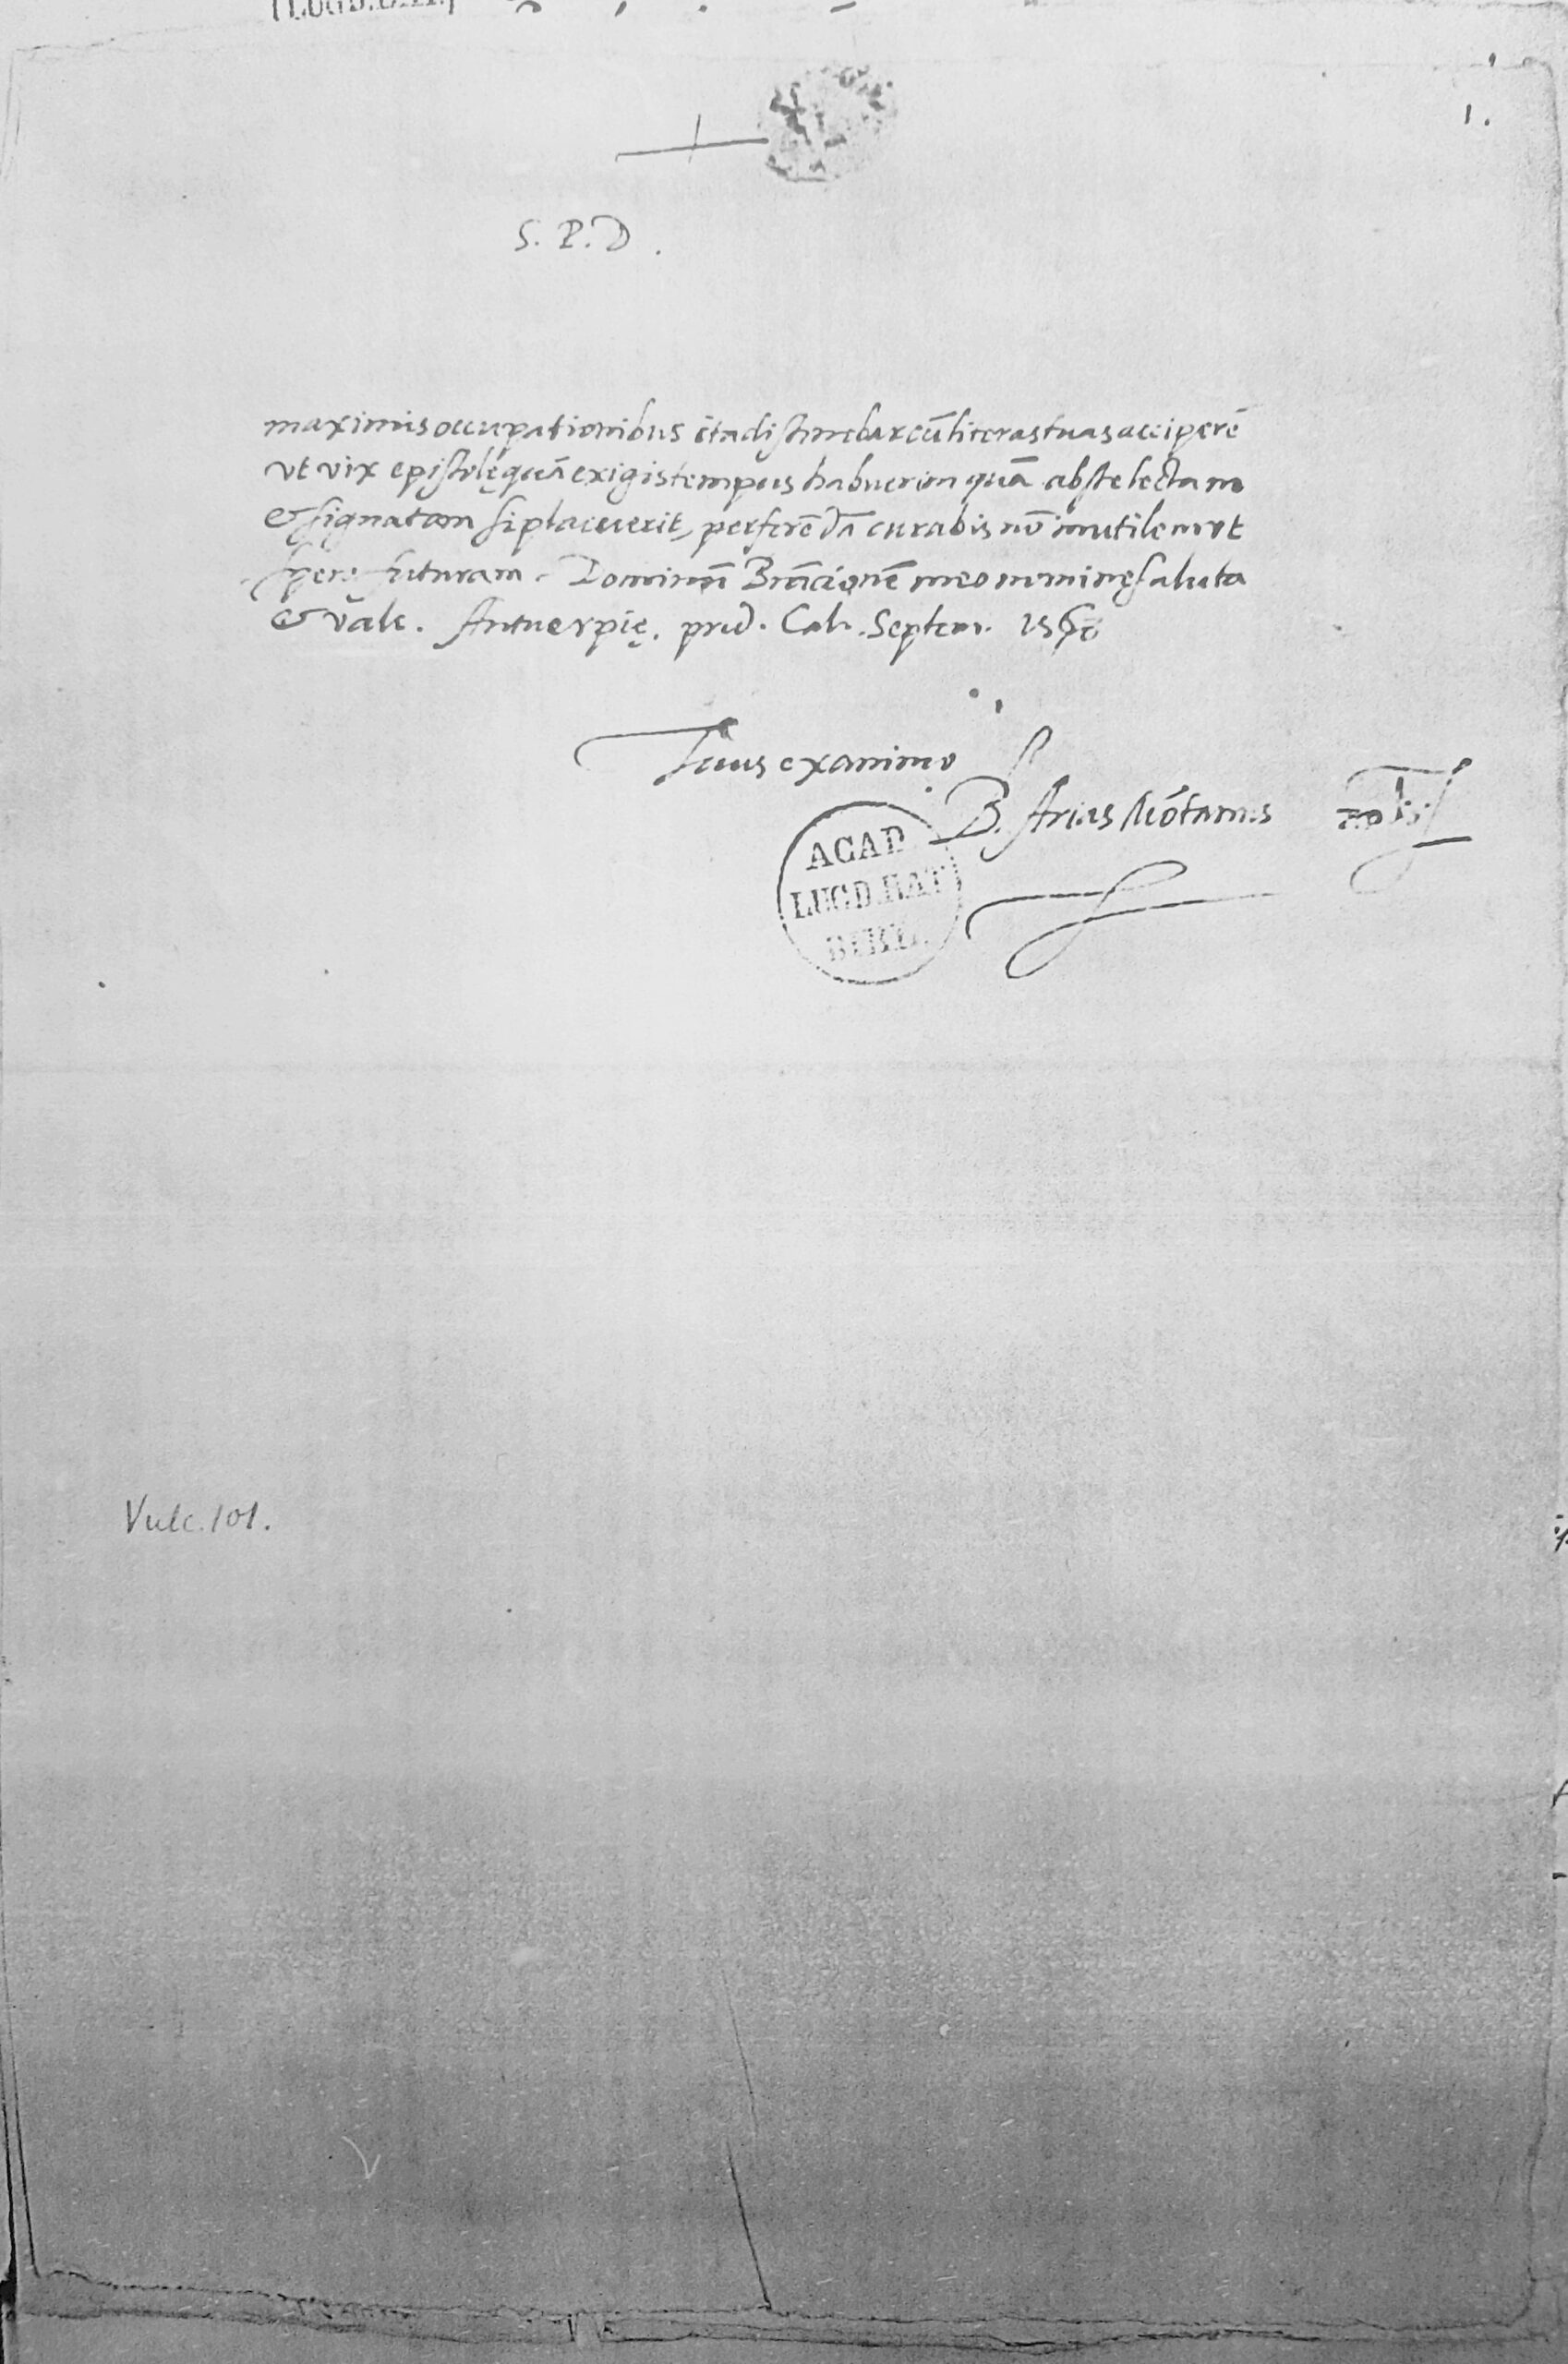 1.
S. P. D.
maximis occupationibus ita distinebar cũ literas tuas acciperẽ
vt vix epistolę quã exigis tempus habuerim quã abs te lectam
& signatam si placuerit, perferẽdã curabis nõ inutilem vt
spero futuram. Dominũ Brãcionẽ meo nominę saluta
& vale. Antuerpię. prid. Cal. Septem.
Tuus ex animo
B. Arias Mõtanus
ACAD
LUGD. BAT
BIBL.
Vulc. 101.